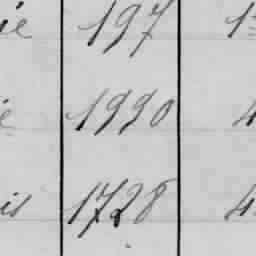 ie 197 1
ie 1990 4
is 1728 4